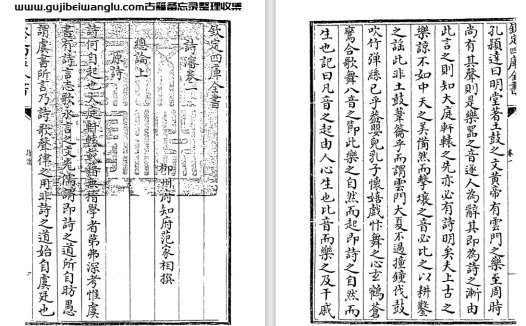 www.gujibeiwanglu.com古籍备忘录整理收集
欽定四庫全書
詩瀋卷一
柳州府知府范家相撰
總論上
原詩
詩何自起也大庭軒轅載籍無稽學者第弗深考惟虞
書有詩言志歌永言之文先儒謂即詩之道所自昉愚
謂虞書所言乃詩歌聲律之用非詩之道始自虞廷也
欽定四庫全書
孔頴達曰明堂著土鼓之文黃帝有雲門之樂至周時
尚有其聲則是樂器之音逐人為辭其即為詩之漸由
此言之則知大庭軒轅之先亦必有詩明矣夫上古之
樂諒不如中天之美備然而擊壤之音必比之以耕鑿
之謡此非土鼓葦籥乎而謂雲門大夏不過撞鐘伐鼓
吹竹彈絲已乎益嬰兒乳子懷嬉戲忭舞之心玄鶴蒼
鸞合歌舞八音之節此樂之自然而起即詩之自然而
生也記曰凡音之起由人心生也比音而樂之及干戚